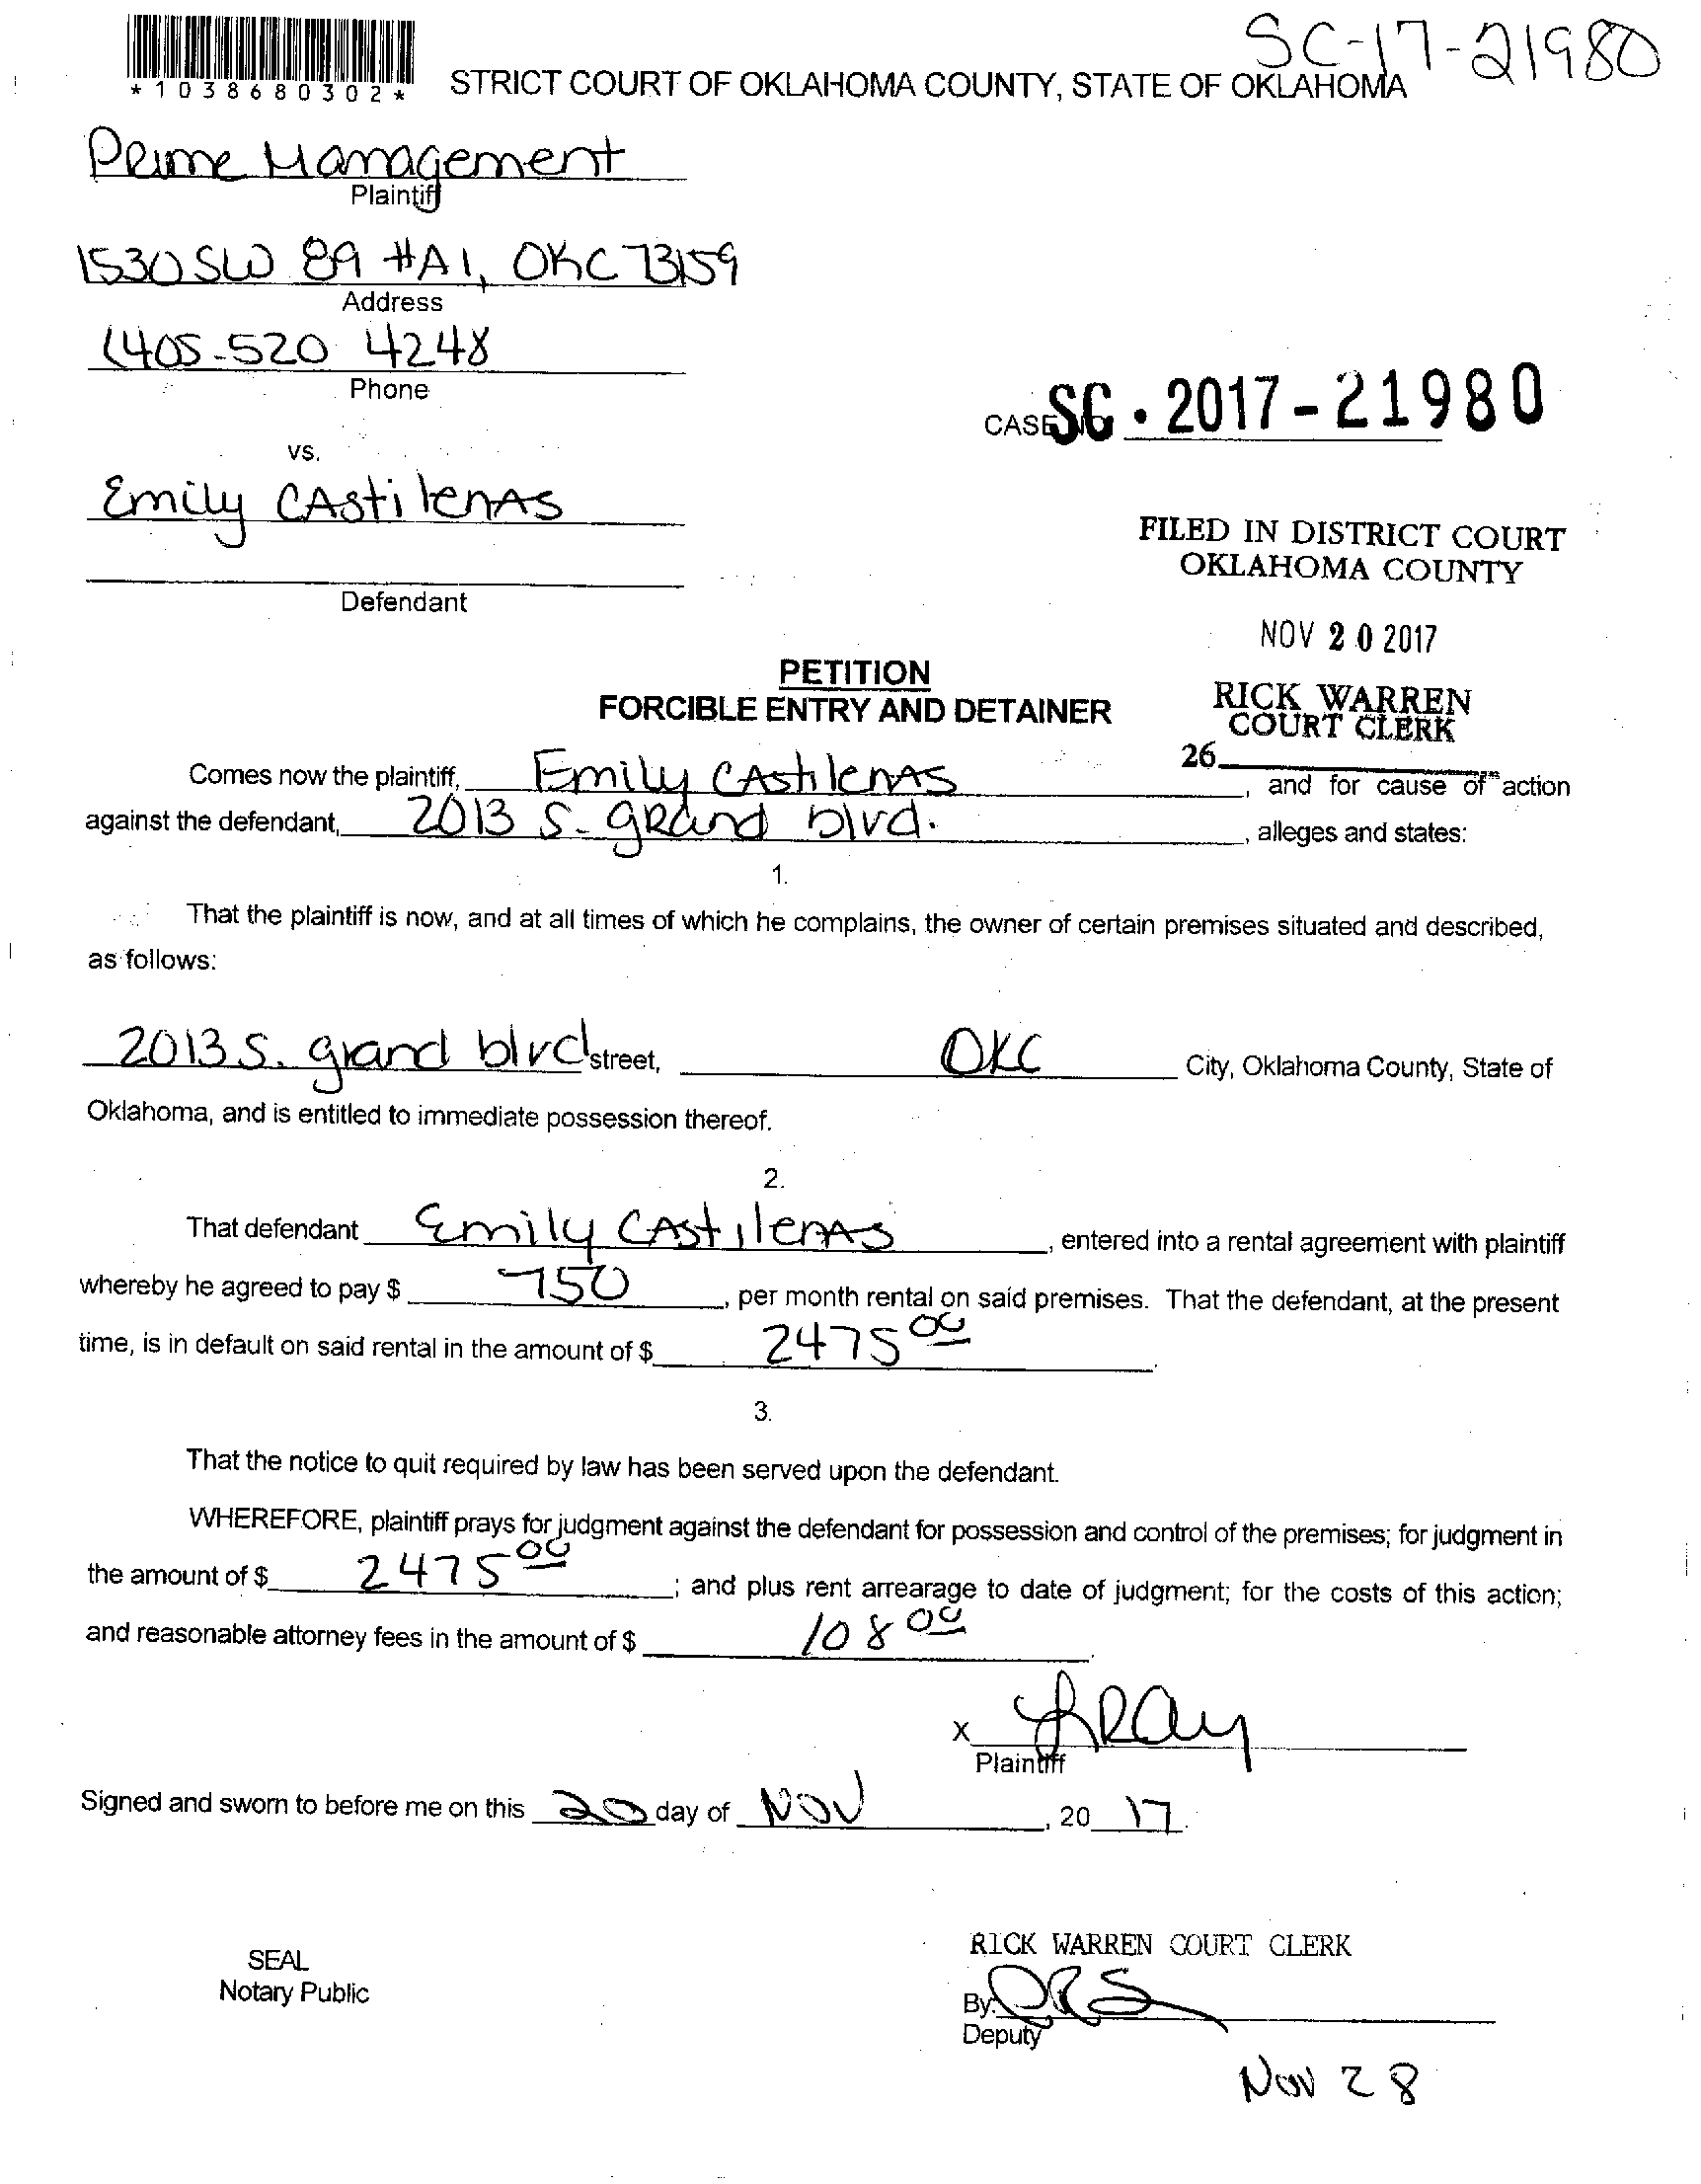 SC-17-21980
*1038680302*
STRICT COURT OF OKLAHOMA COUNTY, STATE OF OKLAHOMA
Prime Management
Plaintiff
1530 SW 89 #A1, OKC 73159
Address
(405-520 4248
Phone
CASE NO. SC · 2017-21980
vs.
Emily CAstilenAs
Defendant
FILED IN DISTRICT COURT
OKLAHOMA COUNTY
NOV 20 2017
RICK WARREN
COURT CLERK
26
PETITION
FORCIBLE ENTRY AND DETAINER
Comes now the plaintiff, Emily CAstilenAs, and for cause of action
against the defendant, 2013 S. grand blvd., alleges and states:
1.
That the plaintiff is now, and at all times of which he complains, the owner of certain premises situated and described,
as follows:
2013 S. grand blvd street, OKC City, Oklahoma County, State of
Oklahoma, and is entitled to immediate possession thereof.
2.
That defendant Emily CAstilenAs, entered into a rental agreement with plaintiff
whereby he agreed to pay $ 750, per month rental on said premises. That the defendant, at the present
time, is in default on said rental in the amount of $ 2475 00.
3.
That the notice to quit required by law has been served upon the defendant.
WHEREFORE, plaintiff prays for judgment against the defendant for possession and control of the premises; for judgment in
the amount of $ 2475 00; and plus rent arrearage to date of judgment; for the costs of this action;
and reasonable attorney fees in the amount of $ 108 00.
x
Plaintiff
Signed and sworn to before me on this 20 day of Nov, 20 17.
SEAL
Notary Public
RICK WARREN COURT CLERK
By:
Deputy
Nov 28